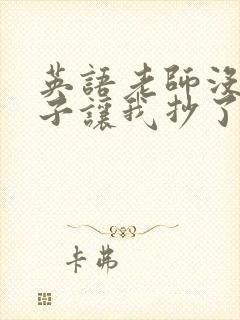 英語老師沒
子讓我抄了
卡弗